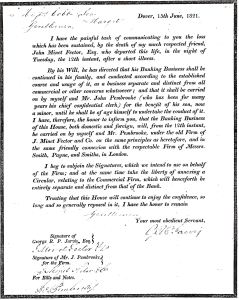 Dover, 15th June, 1821.
Gentlemen
I have the painful task of communicating to you the loss
which has been sustained, by the death of my much respected friend,
John Minet Fector, Esq. who departed this life, in the night of
Tuesday, the 12th instant, after a short illness.
By his Will, he has directed that his Banking Business shall
be continued in his family, and conducted according to the established
course and usage of it, as a business separate and distinct from all
commercial or other concerns whatsoever; and that it shall be carried
on by myself and Mr. John Pembrooke (who has been for many
years his chief confidential clerk,) for the benefit of his son, now
a minor, until he shall be of age himself to undertake the conduct of it.
I have, therefore, the honor to inform you, that the Banking Business
of this House, both domestic and foreign, will, from the 12th instant,
be carried on by myself and Mr. Pembrooke, under the old Firm of
J. Minet Fector and Co. on the same principles as heretofore, and in
the same friendly connexion with the respectable Firm of Messrs.
Smith, Payne, and Smiths, in London.
I beg to subjoin the Signatures, which we intend to use on behalf
of the Firm; and at the same time take the liberty of annexing a
Circular, relating to the Commercial Firm, which will henceforth be
entirely separate and distinct from that of the Bank.
Trusting that this House will continue to enjoy the confidence, so
long and so generally reposed in it, I have the honor to remain
Gentlemen
Your most obedient Servant,
Signature of
George R. P. Jarvis, Esq.
Signature of Mr. J. Pembrooke
for the Firm.
For Bills and Notes.